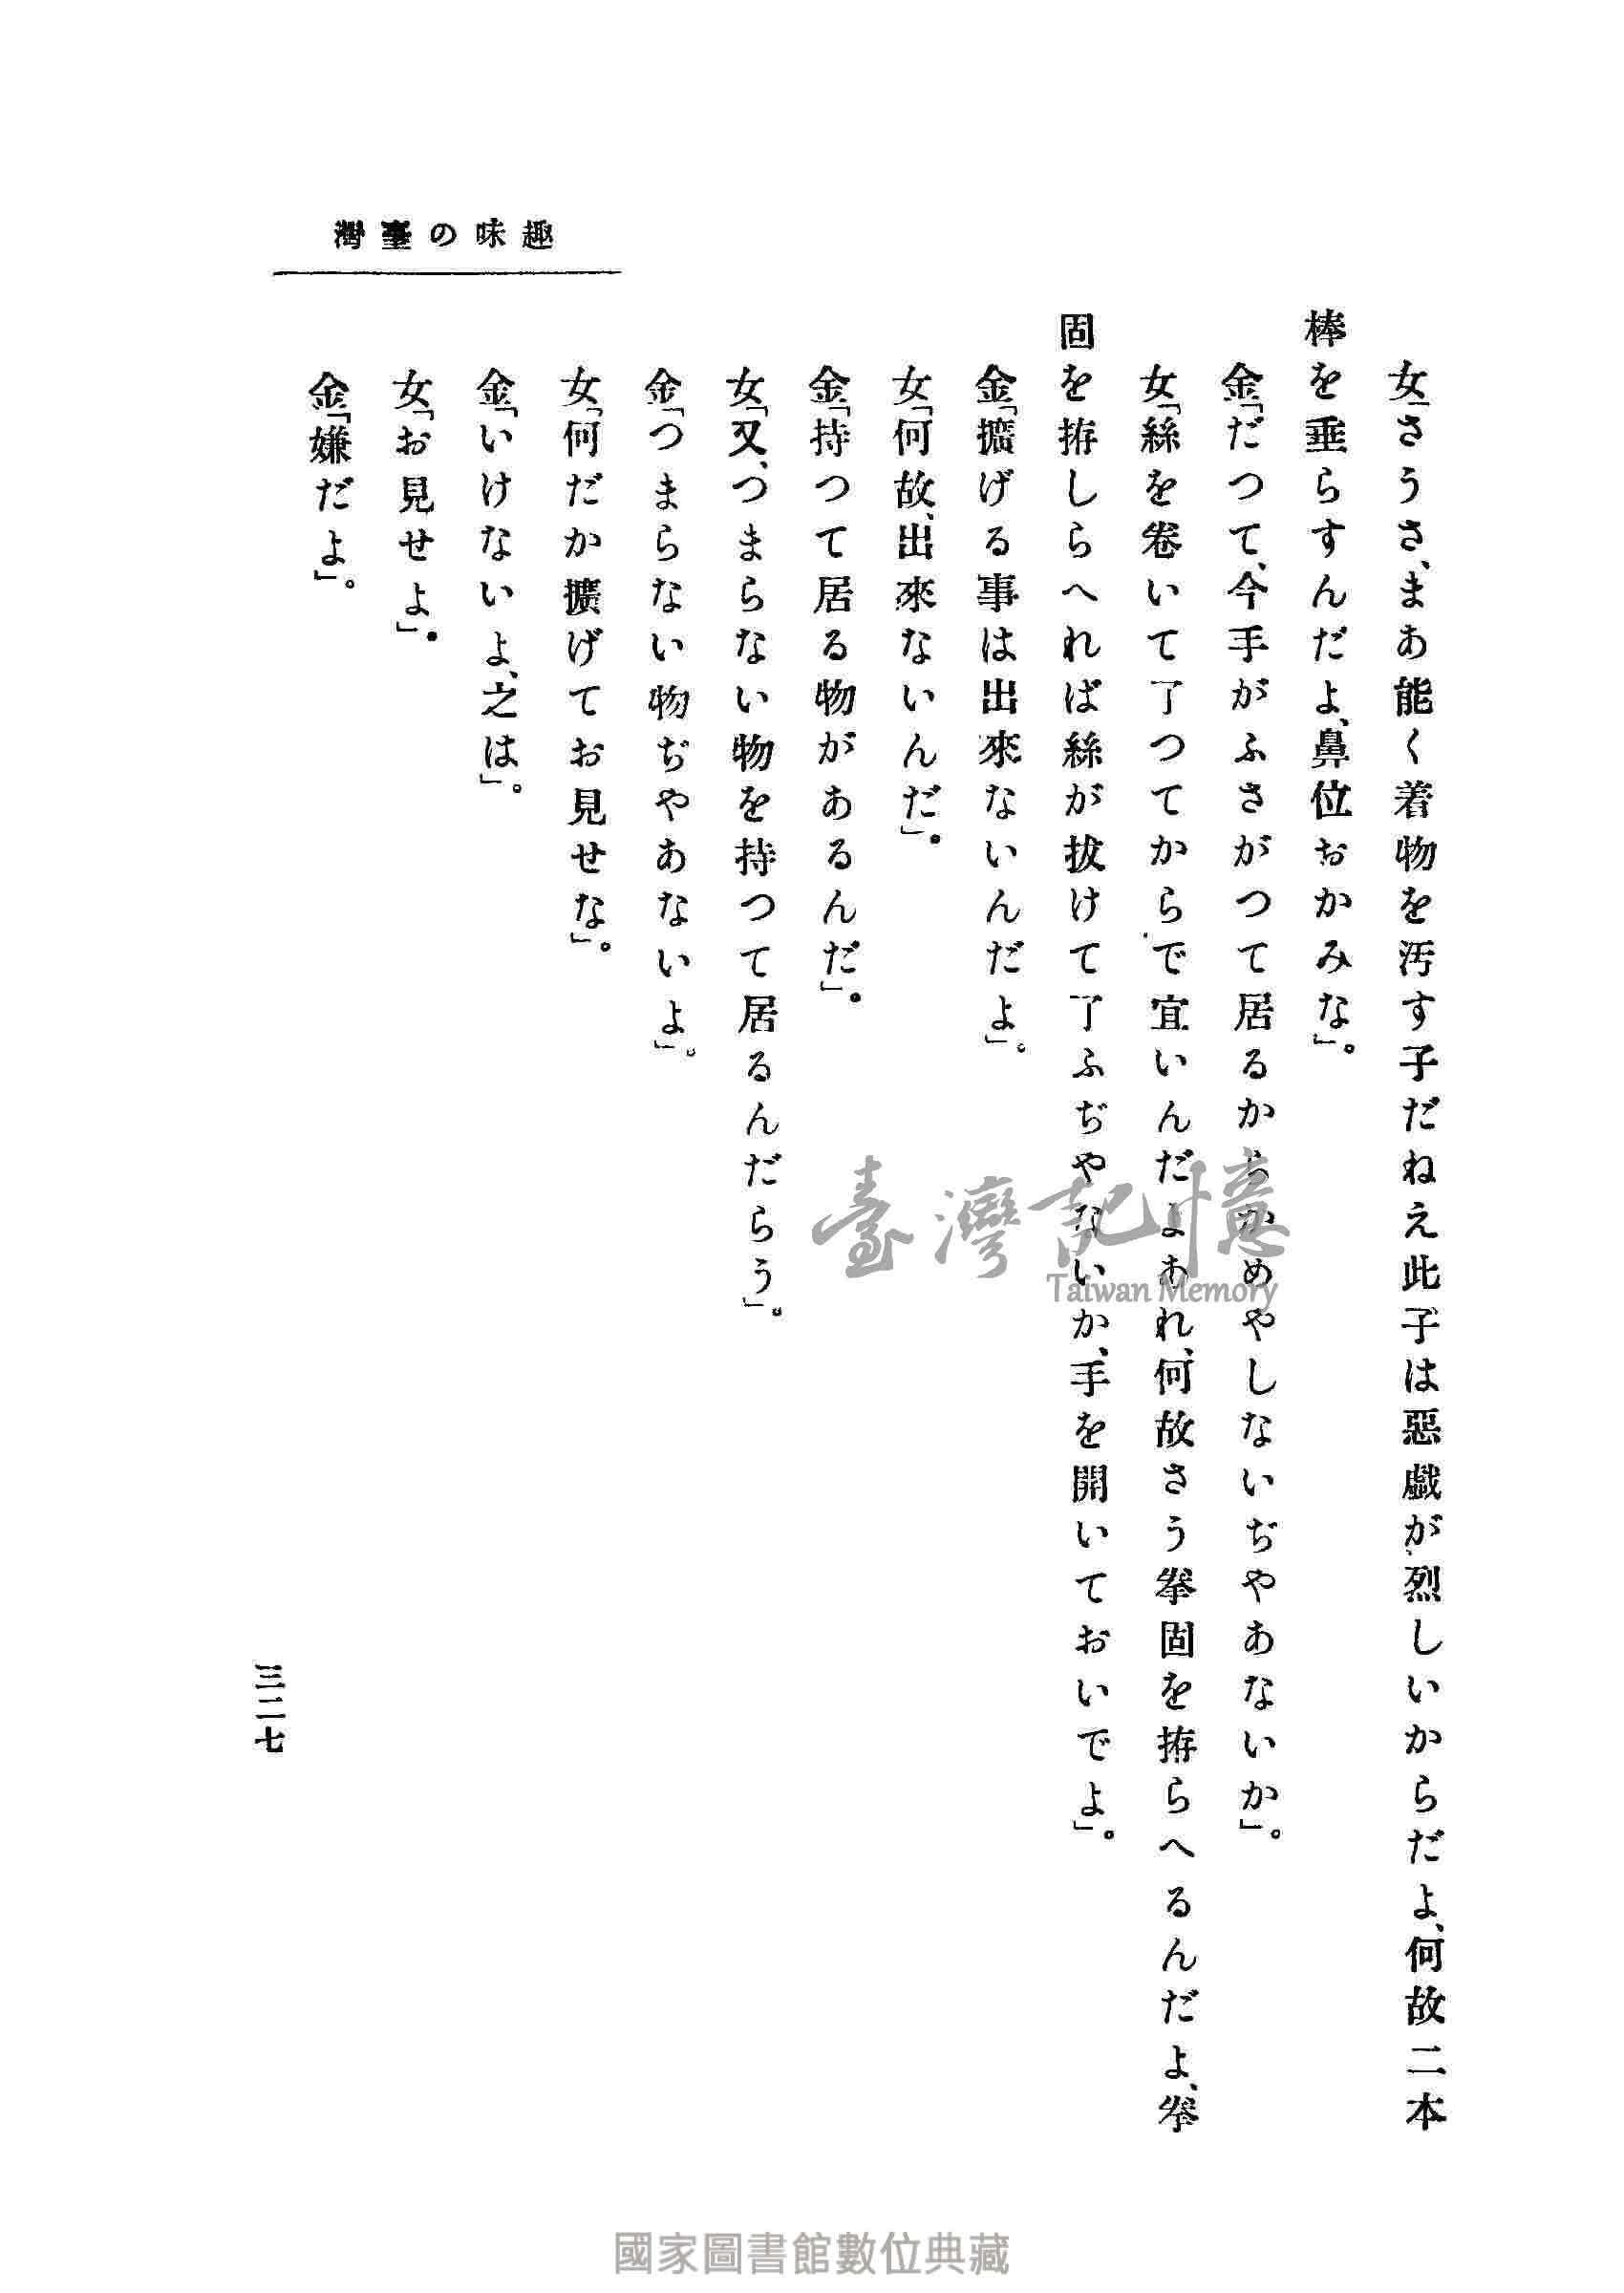 趣味の臺灣
女「さうさ、まあ能く着物を汚す子だねえ此子は惡戯が烈しいからだよ、何故二本
棒を垂らすんだよ、鼻位おかみな」。
金「だつて、今手がふさがつて居るからかめやしないぢやあないか」。
女「絲を卷いて了つてからで宜いんだよあれ、何故さう拳固を拵らへるんだよ、拳
固を拵しらへれば絲が拔けて了ふぢやないか、手を開いておいでよ」。
金「擴げる事は出來ないんだよ」。
女「何故、出來ないんだ」。
金「持つて居る物があるんだ」。
女「又、つまらない物を持つて居るんだらう」。
金「つまらない物ぢやあないよ」。
女「何だか擴げてお見せな」。
金「いけないよ、之は」。
女「お見せよ」。
金「嫌だよ」。
三二七
臺灣記憶
Taiwan Memory
國家圖書館數位典藏